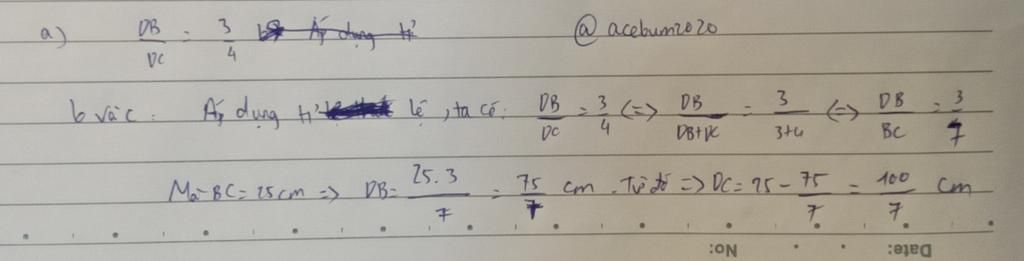 a) DB/DC = 3/4 @acebum2020
b và c: Áp dụng tỉ lệ, ta có: DB/DC = 3/4 <=> DB/DB+DC = 3/3+4 <=> DB/BC = 3/7
Mà BC = 25cm => DB = 25.3/7 = 75/7 cm. Từ đó => DC = 25 - 75/7 = 100/7 cm
No: Date: